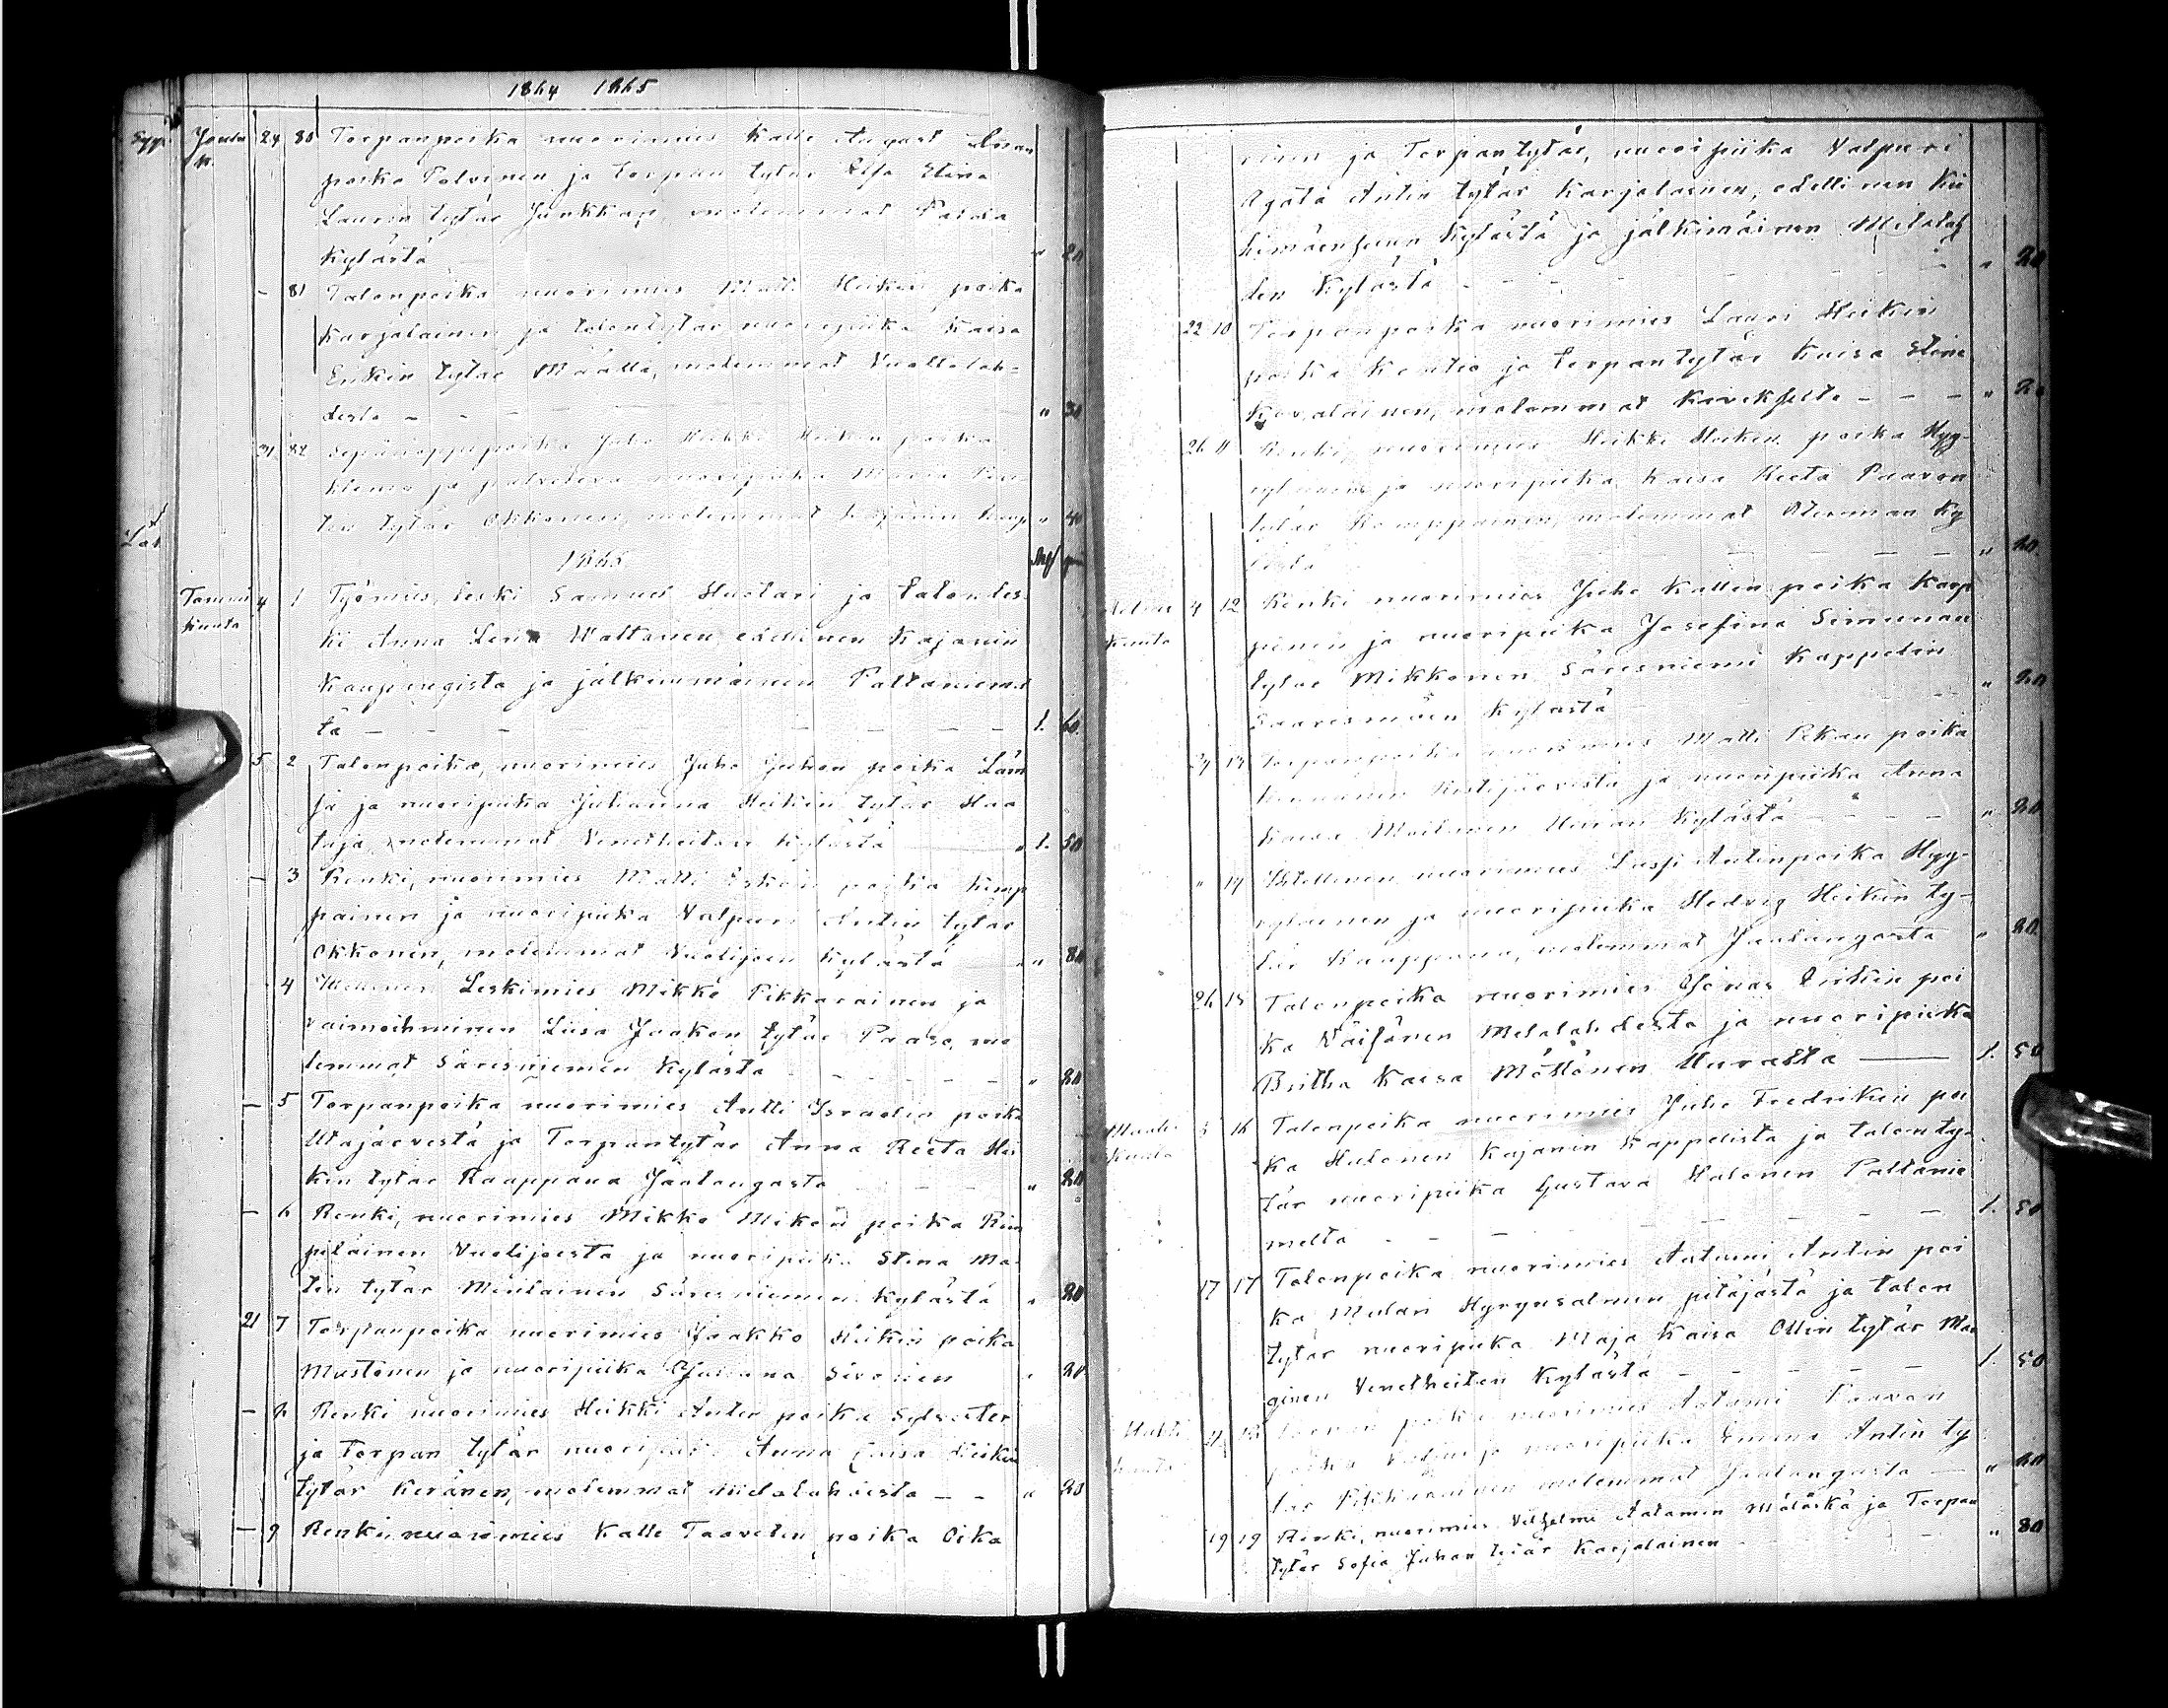 1864 1865
Joulu 24 80 Torpanpoika nuorimies Kalle August
poika Polvinen ja torpan tytär Elsa Stina
Laurin tytär Junkkari, molemmat
kylästä " 20
- 81 Talonpoika nuorimies Matti Heikin poika
Karjalainen ja talontytär nuoripiika Kaisa
Erikin tytär Määttä, molemmat Vuottolah=
desta - - " 30
31 82 Sepänoppipoika Juho Heikki Heikin poika
ja palveleva nuoripiika Maria
tytär Okkonen, molemmat " 40
1865
Tammi 4 1 Työmies, leski Samuel Mustari ja talonles-
kuuta
ki Anna Lena Waltanen edellinen Kajanin
kaupungista ja jälkimmäinen Paltaniemel
tä - - - - - 1. 60.
5 2 Talonpoika, nuorimies Juho Juhon poika Läm
sä ja nuoripiika Julianna Heikin tytär Haa
taja, molemmat Venetheiton kylästä 1. 50
- 3 Renki, nuorimies Matti Eskon poika Kemp
painen ja nuoripiika Valpuri Antin tytär
Okkonen, molemmat Vuolijoen kylästä " 80
4 Leskimies Mikko Pikkarainen ja
vaimoihminen Liisa Jaakon tytär Paaso, mo
lemmat Säresniemen kylästä - - - - " 20
- 5 Torpanpoika nuorimies Antti Israelin poika
Utajärvestä ja Torpantytär Anna Reeta Hei
kin tytär Kauppana Jaalangasta " 20
- 6 Renki, nuorimies Mikko Mikon poika Rim
piläinen Vuolijoesta ja nuoripiika Stina Ma-
tin tytär Säresniemen kylästä " 20
21 7 Torpanpoika nuorimies Jaakko Heikin poika
Mustonen ja nuoripiika Juliana Sirvinen 20
- 8 Renki nuorimies Heikki Antin poika Sylvester
ja Torpan tytär nuoripiika Anna Caisa Heikin
tytär Keränen, molemmat Mielalahdesta - - " 20
- 9 Renki, nuorimies Kalle Taavetin poika Oika
rinen ja Torpantytär, nuori piika Valpuri
Agata Antin tytär Karjalainen, edellinen Ki
kylästä ja jälkimäinen Melalah
den kylästä - - - " 20
22 10 Torpanpoika nuorimies Lauri Heikin
poika Kontio ja torpantytär Kaisa Stina
Kovalainen, molemmat - - - " 20
26 11 Renki, nuorimies Heikki Heikin poika Hyy-
ryläinen ja nuoripiika Kaisa Reeta Paavon
tytär Komppainen, molemmat Oterman ky
lästä - - - " 20.
Helmi 4 12 Renki nuorimies Juho Kallen poika Karp
kuuta
pinen ja nuoripiika Josefina Simunan
tytär Mikkonen Säresniemi Kappelin
Saaresmäen kylästä " 20
24 13 Torpanpoika nuorimies Matti Pekan poika
Ristijärvestä ja nuoripiika Anna
Kaisa Moilanen kylästä - - - " 20
" 14 Itsellinen nuorimies Lassi Antinpoika Hyy-
ryläinen ja nuoripiika Hedvig Heikin ty-
tär Kauppana, molemmat Jaalangasta " 20.
26 15 Talonpoika nuorimies Jonas Erikin poi
ka Väisänen Melalahdesta ja nuoripiika
Britha Kaisa Möttönen Uurasta — 1. 50
Maalis 5 16 Talonpoika nuorimies Juho Fredrikin poi
kuuta
ka Halonen Kajanin Kappelista ja talonty-
tär nuoripiika Gustava Halonen Paltanie
meltä - - - 1. 50
17 17 Talonpoika nuorimies Aatami Antin poi
ka Mulari Hyrynsalmen pitäjästä ja talon
tytär nuoripiika Maja Kaisa Ollin tytär Man
ginen Venetheiton kylästä - - - 1. 50
Huhti 21 18 poika nuorimies Aatami Paavon
kuuta
poika ja nuoripiika Emma Antin ty
tär Pikkarainen molemmat Jaalangasta — " 20
19 19 Renki, nuorimies Vilhelmi Aatamin Mäläskä ja Torpan
tytär Sofia Juhan tytär Karjalainen " 80